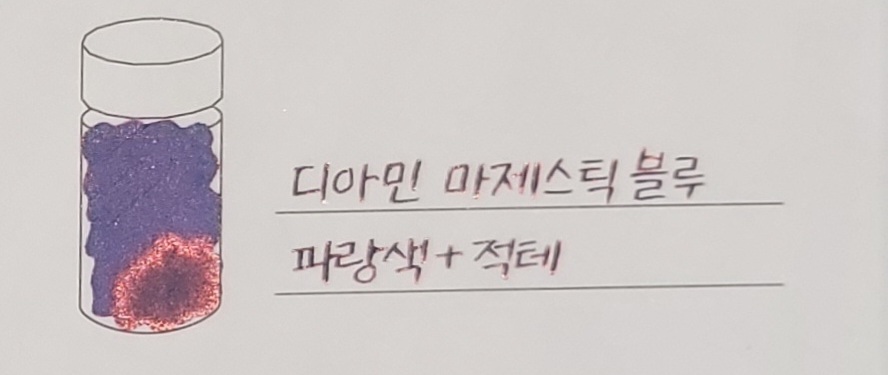 디아민 마제스틱 블루
파랑색+적테